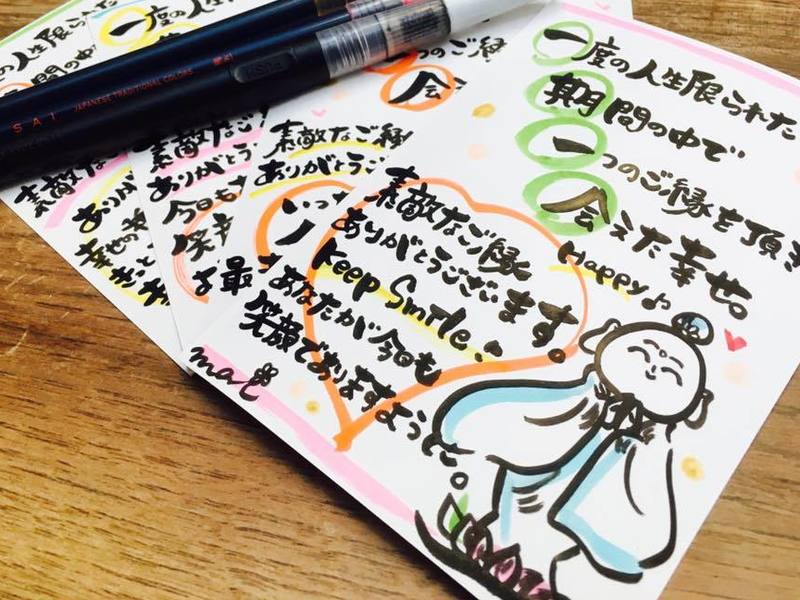 一度の人生限られた
期間の中で
一つのご縁を頂き
会えた幸せ。
Happy♪
素敵なご縁に
ありがとうございます。
Keep Smile
あなたが今日も
笑顔でおりますように。
mae
SAI JAPANESE TRADITIONAL COLORS
人生限られた
一度の人生
期間の中
つのご縁
会え
素敵なご縁
ありがとうご
いつ
最
素敵なご
ありがとう
今日も
笑顔
素敵な
ありが
幸せの
きっと